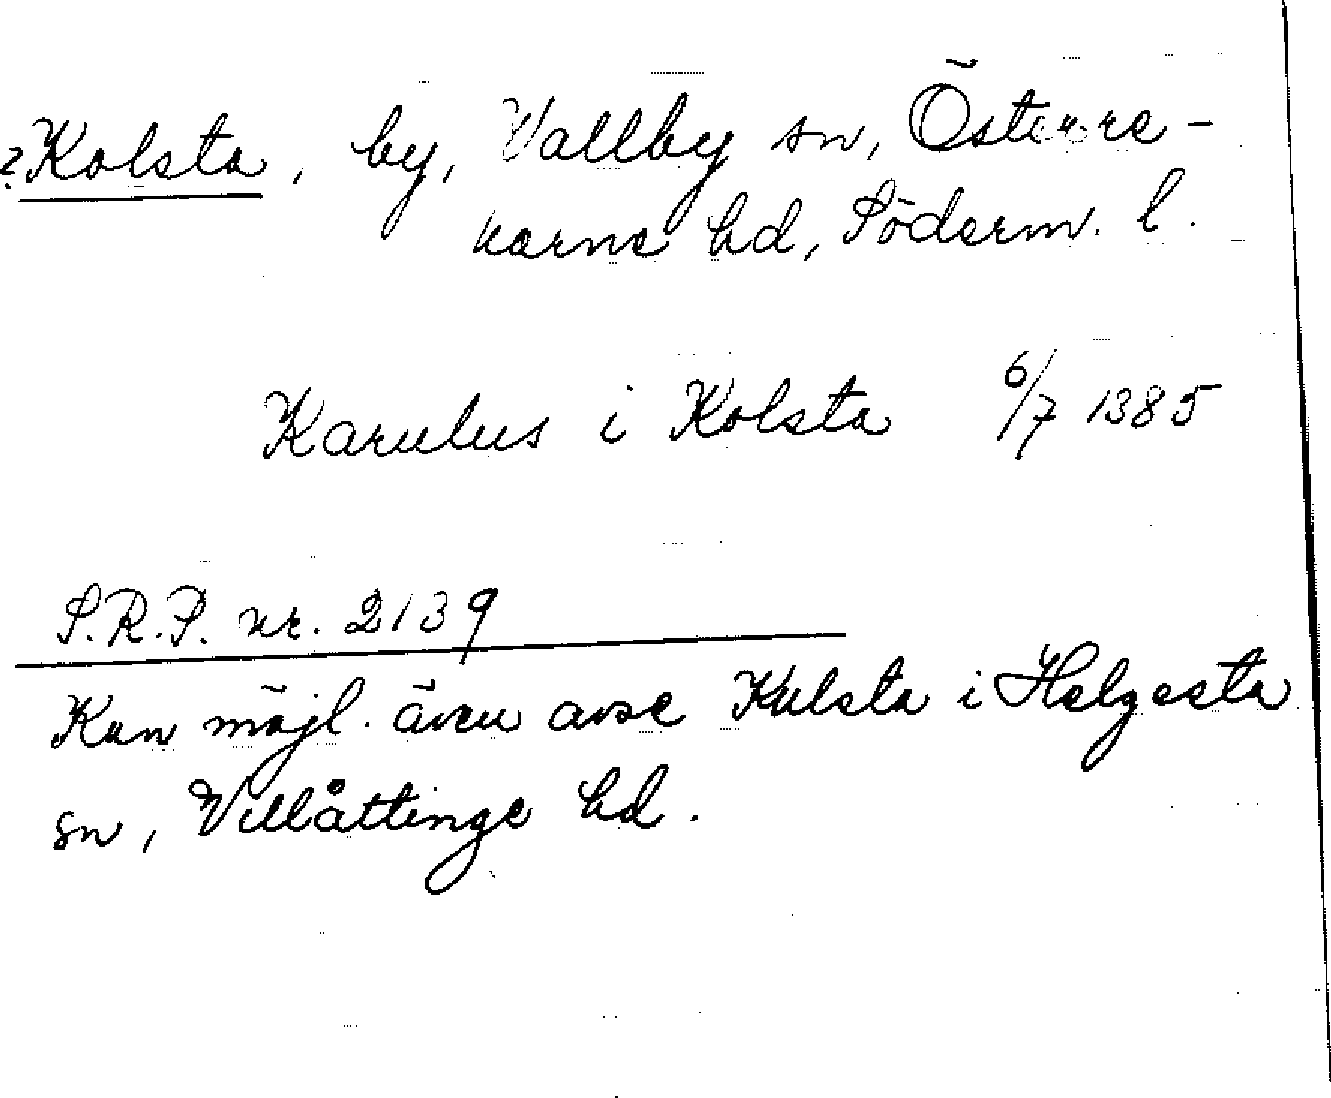 ?Kolsta, by, Vallby sn, Österre-
karne hd, Söderm. l.
Karulus i Kolsta 6/7 1385
S.R.P. nr. 2139
Kan möjl. även avse Kulsta i Helgesta
sn, Villåttinge hd.